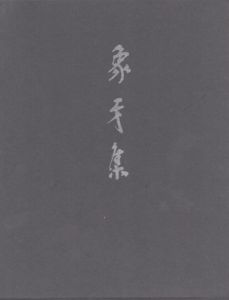 象牙集